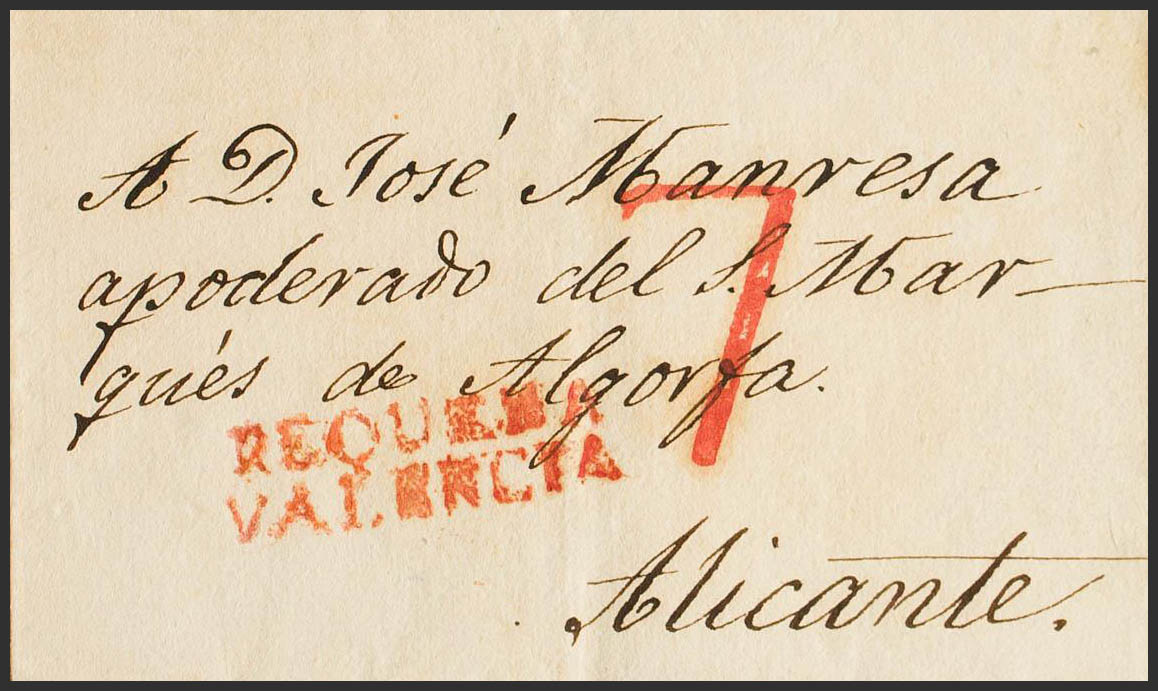 A D. José Manresa
apoderado del S. Mar-
qués de Algorfa.
7
REQUENA
VALENCIA
Alicante.